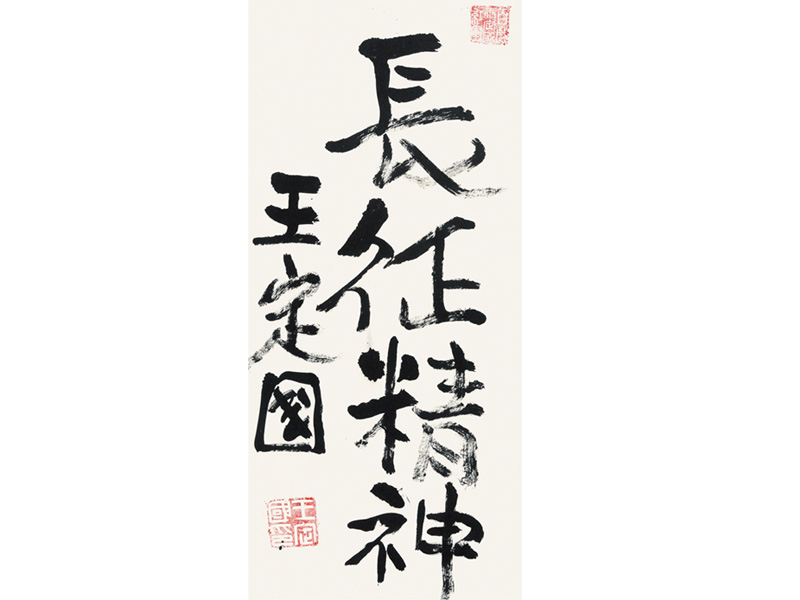 長征精神
王定國
王定國印